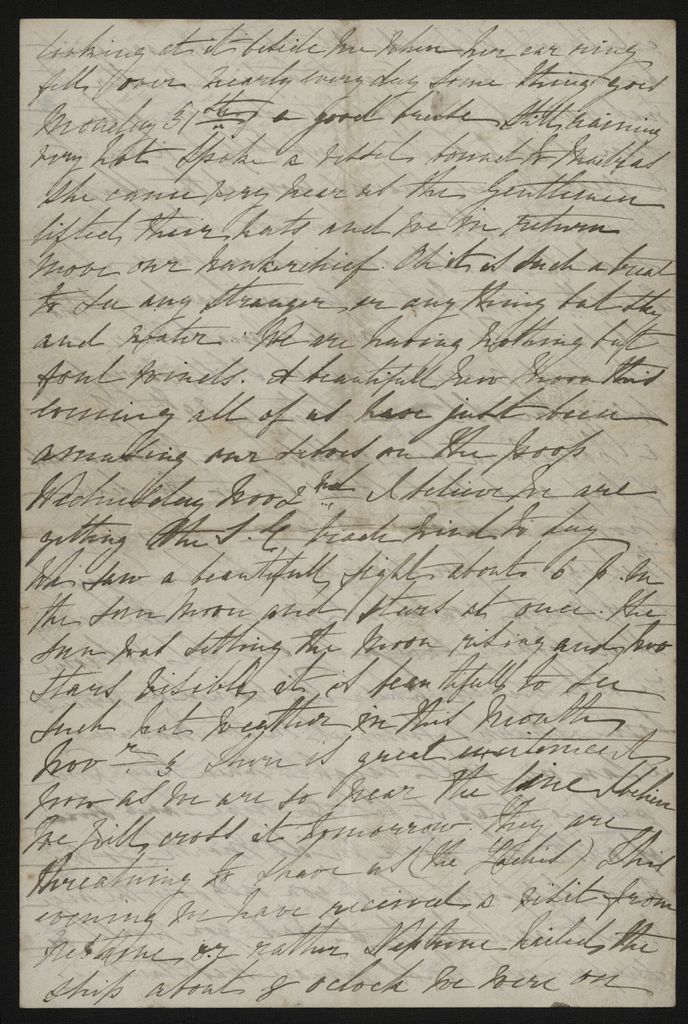 looking at it beside me when her ear ring
fell over nearly every day some thing goes
Monday 31st a good breese still raining
very hot spoke a vessel bound to
she came very near us the Gentlemen
lifted their hats and we in return
move our hankerchief. Oh it is such a treat
to see any stranger or any thing but sky
and water. We are having nothing but
foul winds. A beautifull new moon this
evening all of us have just been
amusing our selves on the poop
Wednesday Nov 2nd I believe we are
getting the S. E trade wind to day
We saw a beautifull sight about 6 P. M
the sun moon and stars at once. the
sun was setting the moon rising and two
stars visible, it is beautifull to see
such hot weather in this month
Novr 3 there is great excitement
now as we are so near the line I believe
we will cross it tomorrow. They are
threatning to shave us (the Ladies) This
evening we have received a visit from
or rather Neptune hailed the
ship about 8 oclock we were on